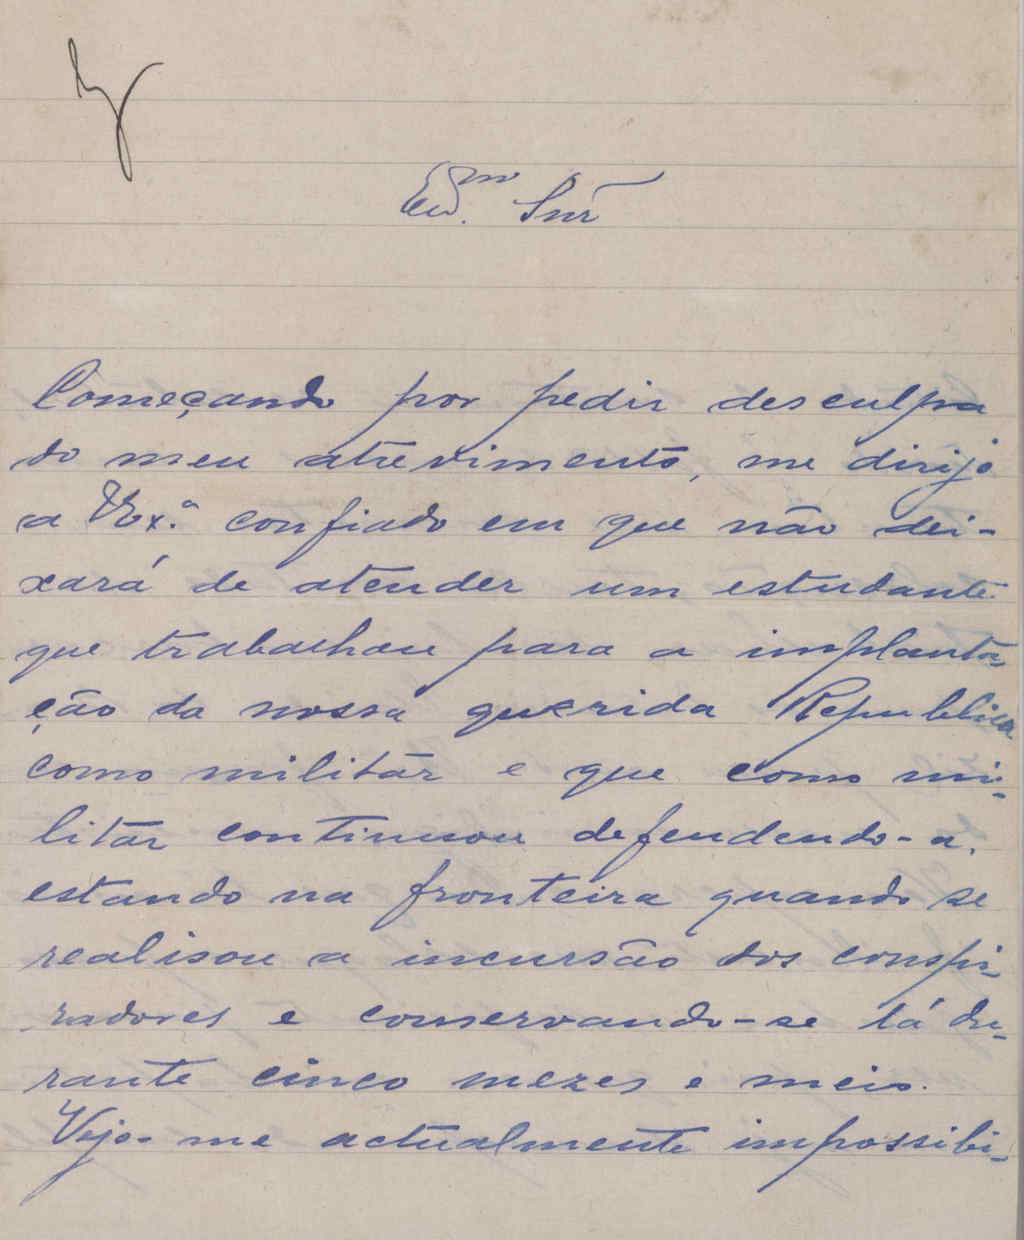 Exmo. Snr
Começando por pedir desculpa
do meu atrevimento, me dirijo
a V Ex.ª confiado em que não dei-
xará de atender um estudante
que trabalhou para a implanta-
ção da nossa querida Republica
como militar e que como mi-
litar continuou defendendo-a,
estando na fronteira quando se
realisou a incursão dos conspi-
radores e conservando-se lá du-
rante cinco mezes e meio.
Vejo-me actualmente impossibi-